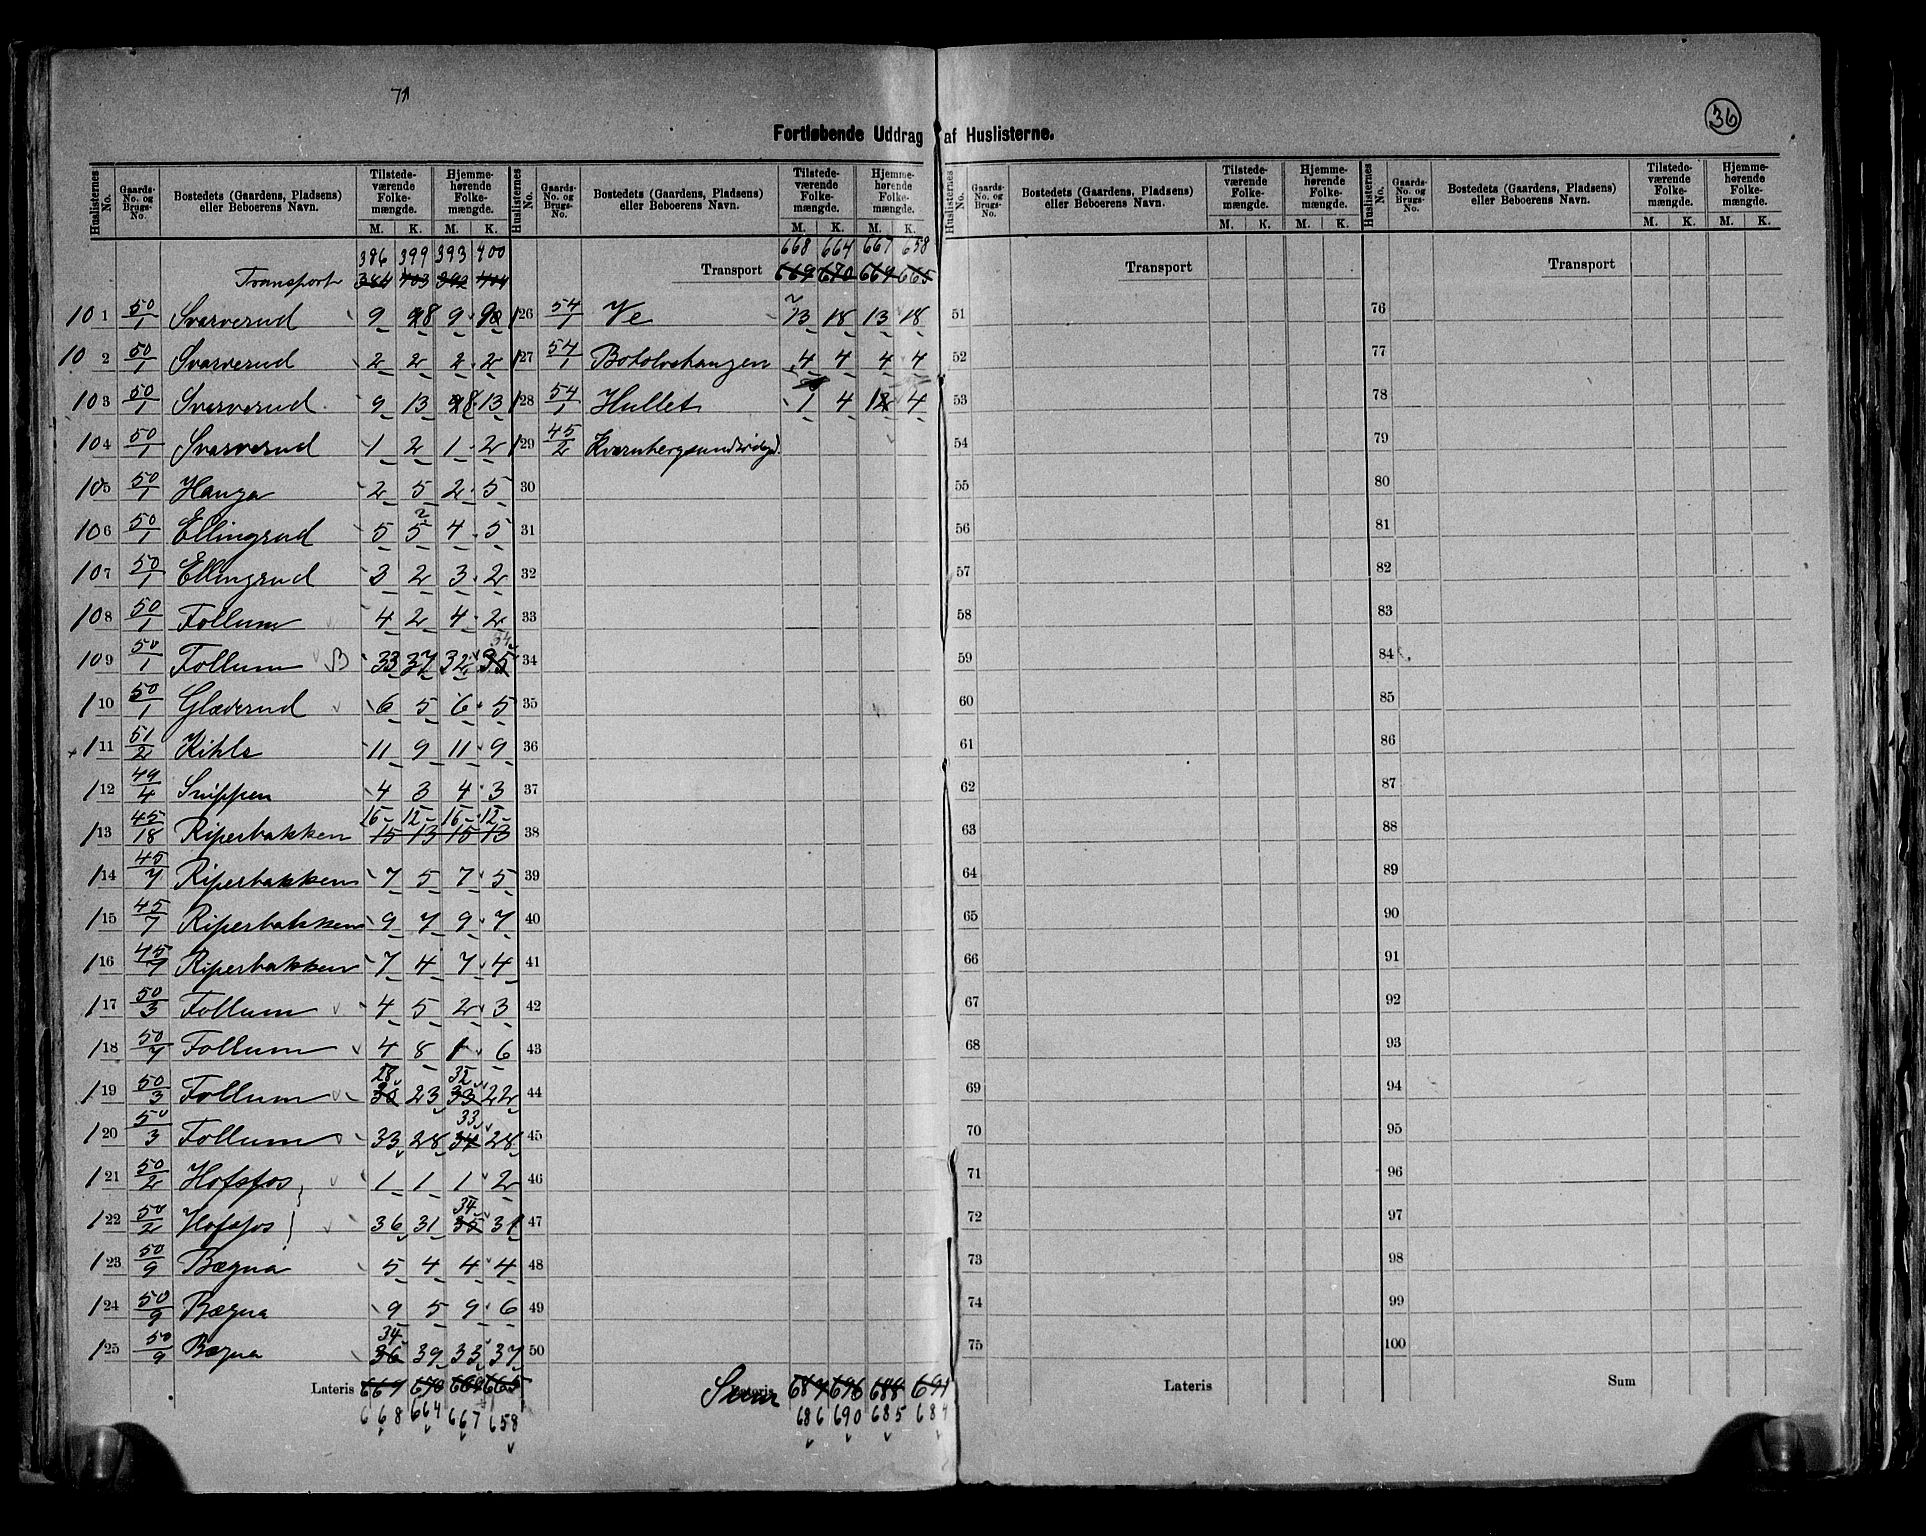 71
36
Fortløbende Uddrag af Huslisterne.
Huslisternes No. | Gaards-No. og Brugs-No. | Bostedets (Gaardens, Pladsens) eller Beboerens Navn. | Tilstedeværende Folkemængde. M. K. | Hjemmehørende Folkemængde. M. K.
386 399 393 400
Transport 384 403 392 404
101 50/1 Svarverud 9 8 9 9
102 50/1 Svarverud 2 2 2 2
103 50/1 Svarverud 9 13 8 13
104 50/1 Svarverud 1 2 1 2
105 50/1 Hauga 2 5 2 5
106 50/1 Ellingsrud 5 5 4 5
107 50/1 Ellingsrud 3 2 3 2
108 50/1 Follum 4 2 4 2
109 50/1 Follum B 33 37 32 35
110 50/1 Gladerud 6 5 6 5
111 51/2 Kihle 11 9 11 9
112 49/4 Snippen 4 3 4 3
15 12 15 12
113 45/18 Riperbakken 15 13 15 13
114 45/7 Riperbakken 7 5 7 5
115 45/7 Riperbakken 9 7 9 7
116 45/7 Riperbakken 7 4 7 4
117 50/3 Follum 4 5 2 3
118 50/7 Follum 4 8 1 6
28 32
119 50/3 Follum 30 23 33 22
33
120 50/3 Follum 33 28 34 28
121 50/2 Hofsfos 1 1 1 2
34
122 50/2 Hofsfos 36 31 35 31
123 50/9 Bægna 5 4 4 4
124 50/9 Bægna 9 5 9 6
34
125 50/9 Bægna 36 39 33 37
Lateris 669 670 669 665
668 664 667 658
Huslisternes No. | Gaards-No. og Brugs-No. | Bostedets (Gaardens, Pladsens) eller Beboerens Navn. | Tilstedeværende Folkemængde. M. K. | Hjemmehørende Folkemængde. M. K.
668 664 667 658
Transport 669 670 669 665
126 54/1 Ve 13 18 13 18
127 54/1 Botolvshaugen 4 4 4 4
128 54/1 Hullet 1 4 1 4
129 45/2
30
31
32
33
34
35
36
37
38
39
40
41
42
43
44
45
46
47
48
49
50
Summa 687 696 688 691
686 690 685 684
Huslisternes No. | Gaards-No. og Brugs-No. | Bostedets (Gaardens, Pladsens) eller Beboerens Navn. | Tilstedeværende Folkemængde. M. K. | Hjemmehørende Folkemængde. M. K.
Transport
51
52
53
54
55
56
57
58
59
60
61
62
63
64
65
66
67
68
69
70
71
72
73
74
75
Lateris
Huslisternes No. | Gaards-No. og Brugs-No. | Bostedets (Gaardens, Pladsens) eller Beboerens Navn. | Tilstedeværende Folkemængde. M. K. | Hjemmehørende Folkemængde. M. K.
Transport
76
77
78
79
80
81
82
83
84
85
86
87
88
89
90
91
92
93
94
95
96
97
98
99
100
Sum